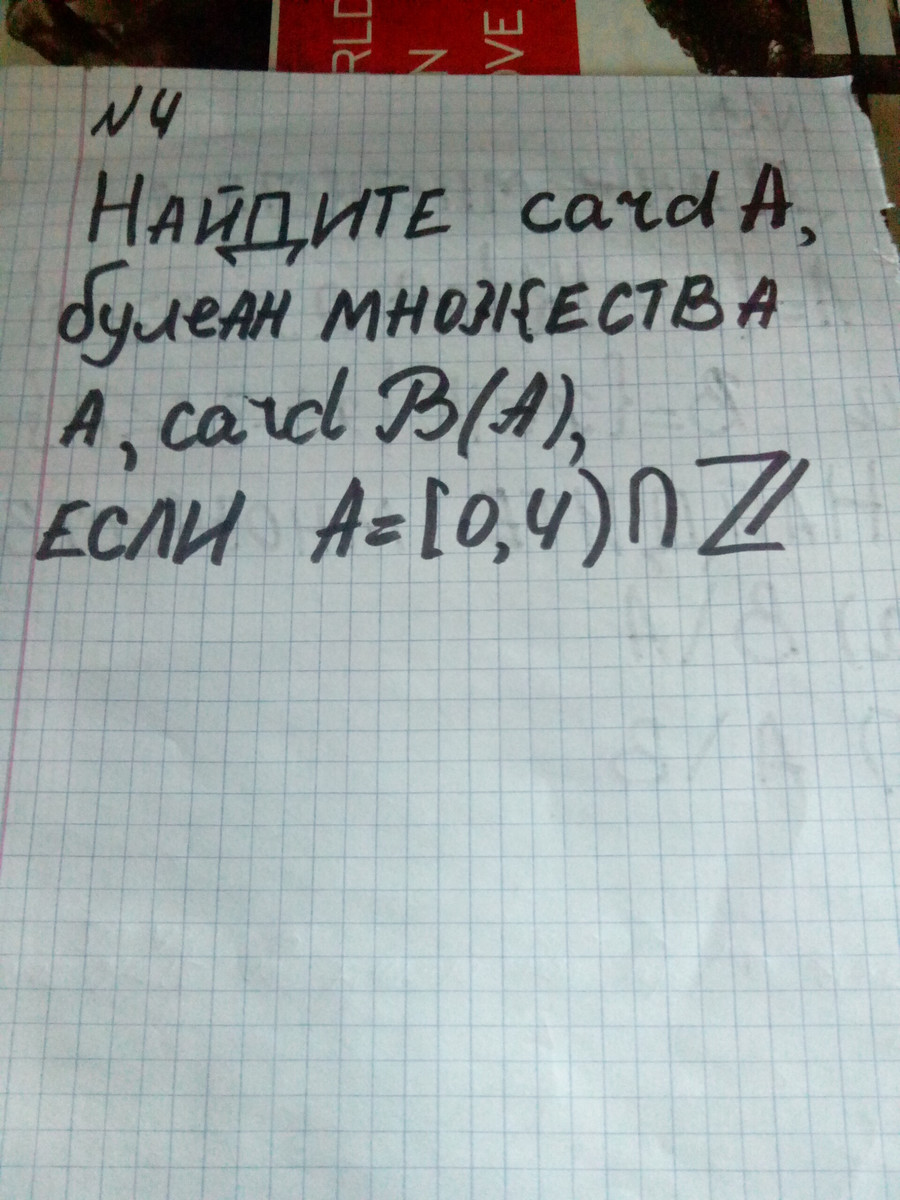 RLD
N
OVE
N4
НАЙДИТЕ card A,
булеАН МНОЖЕСТВА
A, card B(A),
ЕСЛИ A=[0,4)∩ℤ